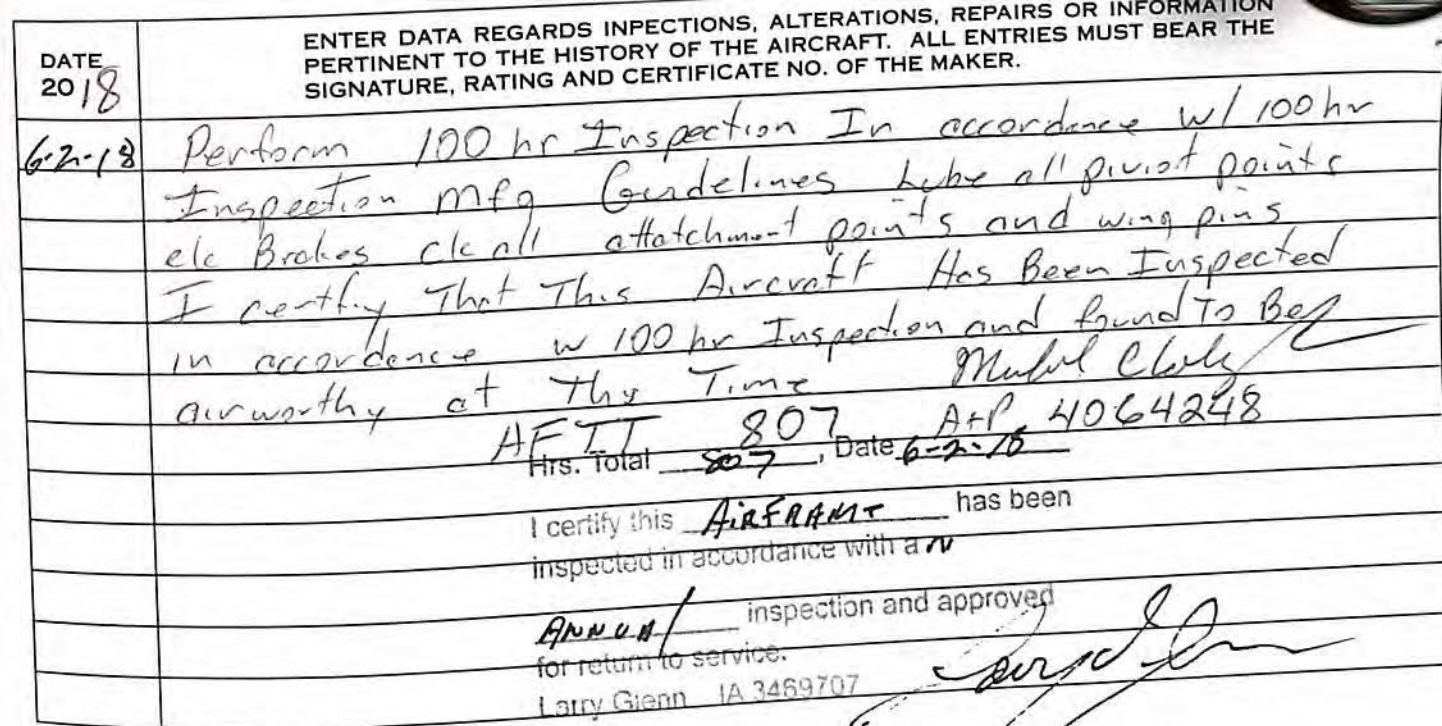 ENTER DATA REGARDS INPECTIONS, ALTERATIONS, REPAIRS OR INFORMATION
PERTINENT TO THE HISTORY OF THE AIRCRAFT. ALL ENTRIES MUST BEAR THE
SIGNATURE, RATING AND CERTIFICATE NO. OF THE MAKER.
DATE
2018
6-2-18 Perform 100 hr Inspection In accordance w/ 100 hr
Inspection Mfg Guidelines Lube all piviot points
ck Brakes ck all attatchment points and wing pins
I certfiy That This Aircraft Has Been Inspected
in accordance w 100 hr Inspection and found To Be
airworthy at Thys Time
AFTT 807 A+P 4064248
Hrs. Total 807, Date 6-2-18
I certify this AIRFRAME has been
inspected in accordance with an
ANNUAl inspection and approved
for return to service.
Larry Glenn IA 3469707